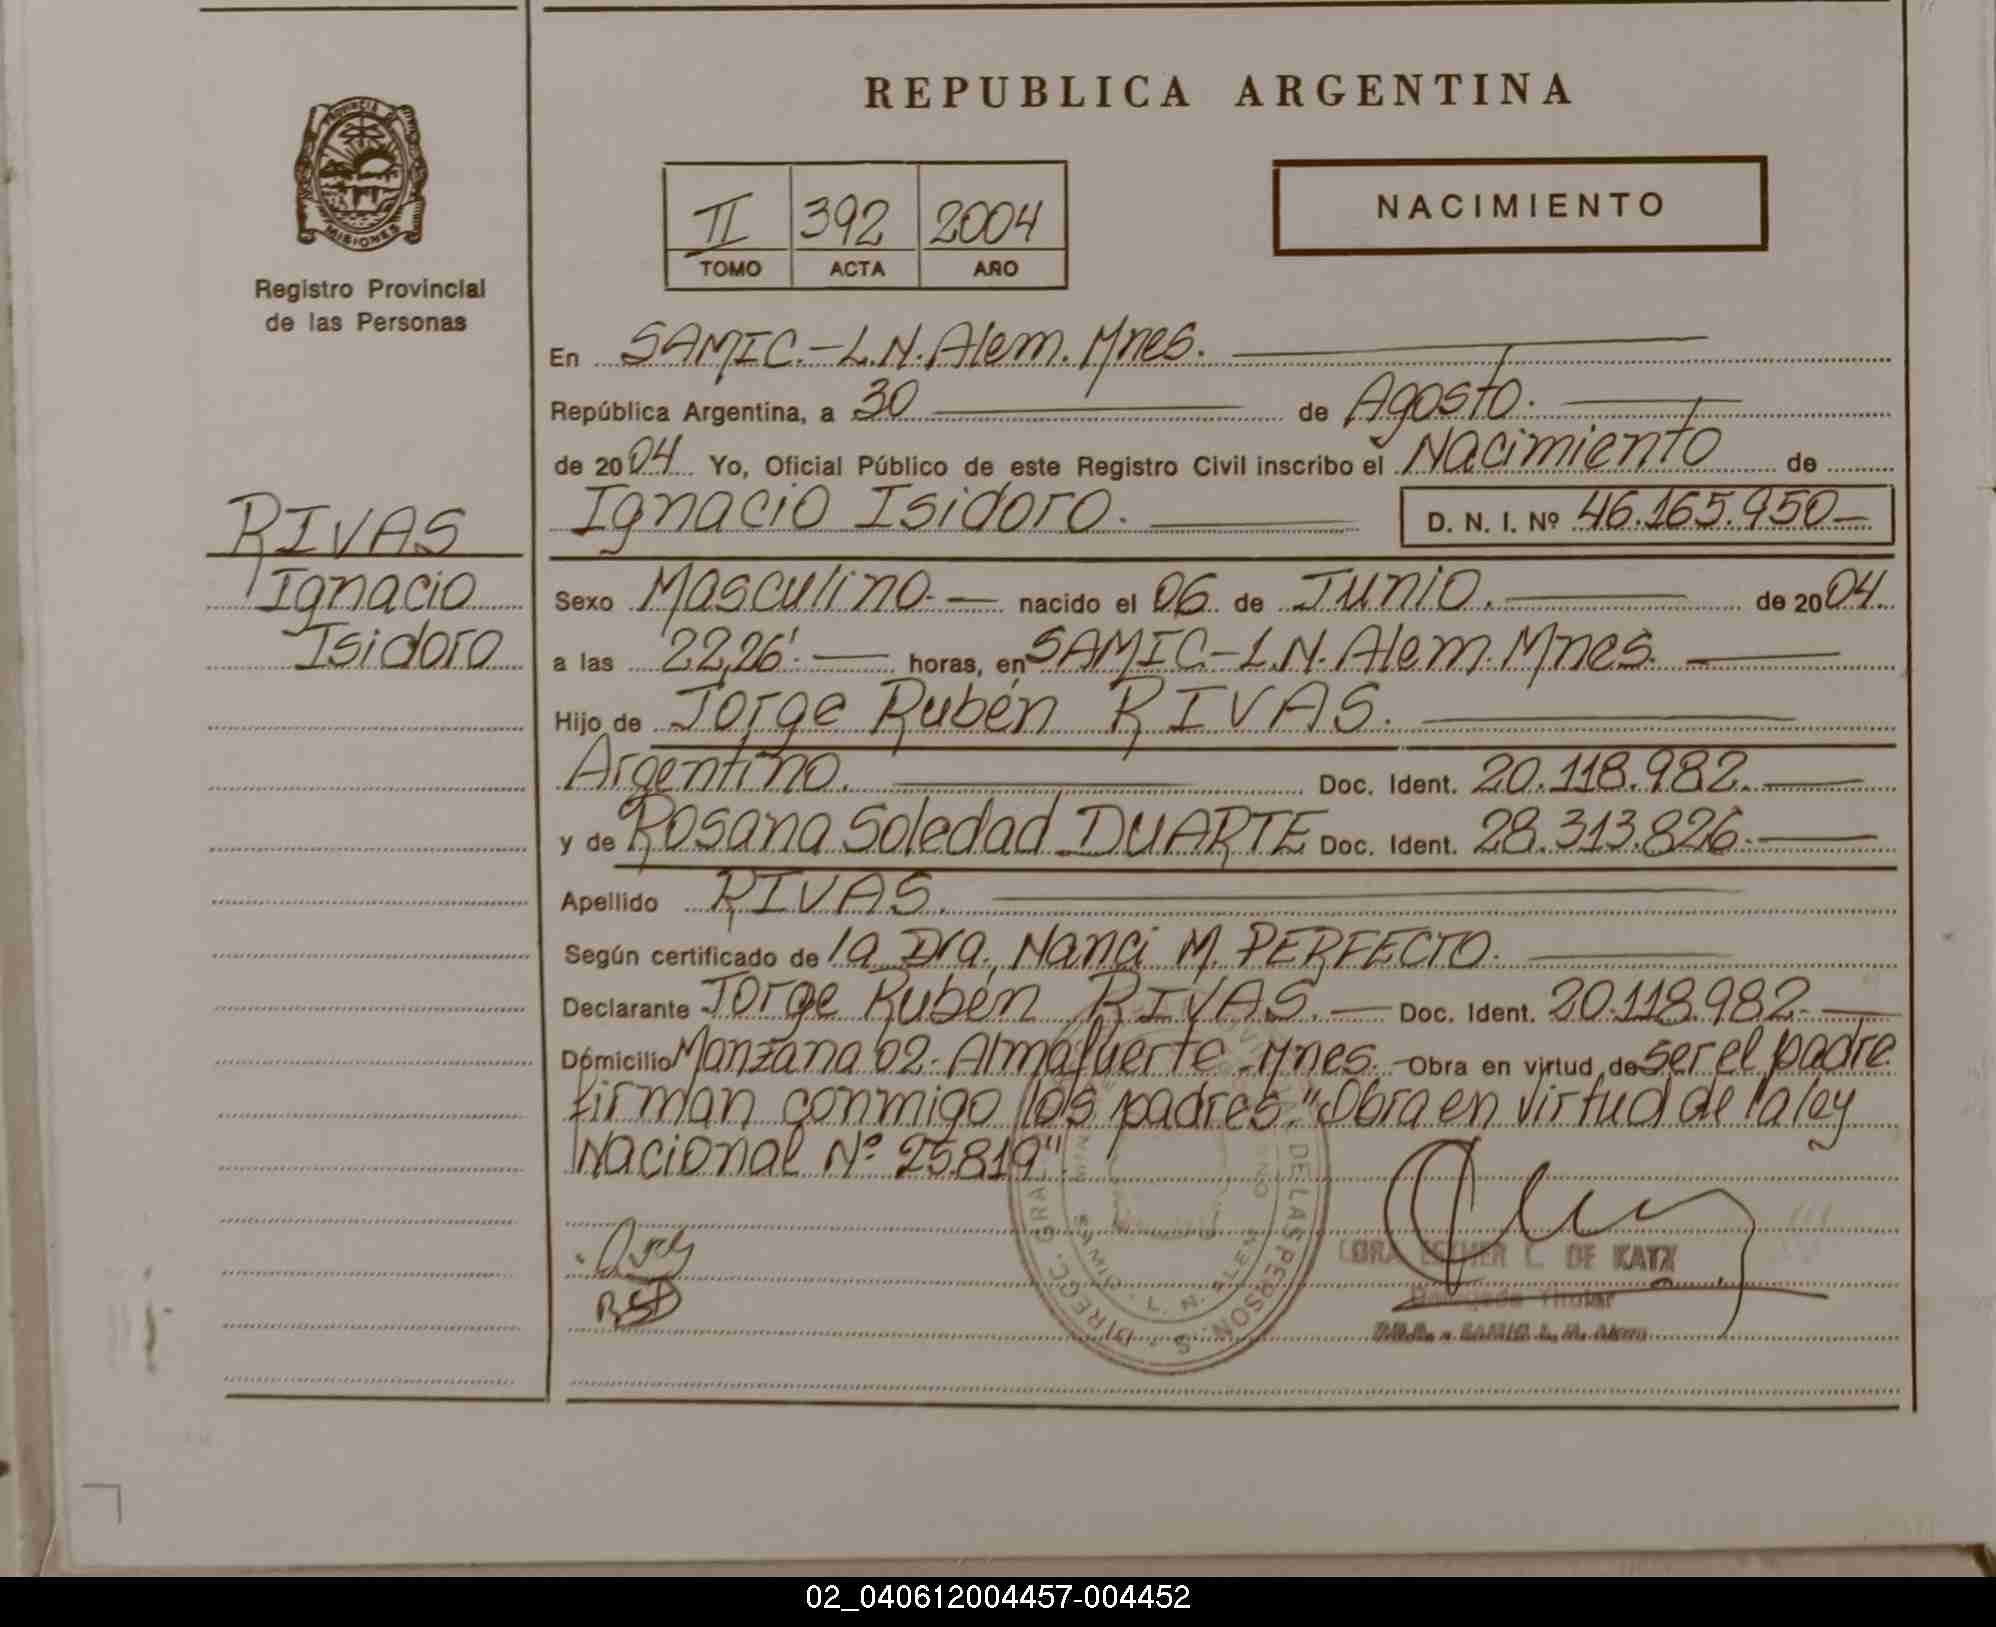 REPUBLICA ARGENTINA
PROVINCIA DE
MISIONES
Registro Provincial
de las Personas
II 392 2004
TOMO ACTA AÑO
NACIMIENTO
En SAMIC.-L.N.Alem.Mnes.
República Argentina, a 30 de Agosto.
de 2004 Yo, Oficial Público de este Registro Civil inscribo el Nacimiento de
Ignacio Isidoro. D. N. I. Nº 46.165.950
RIVAS
Ignacio
Isidoro
Sexo Masculino.- nacido el 06 de Junio. de 2004.
a las 22,26'. horas, en SAMIC-L.N.Alem.Mnes.
Hijo de Jorge Rubén RIVAS.
Argentino. Doc. Ident. 20.118.982.
y de Rosana Soledad DUARTE Doc. Ident. 28.313.826.
Apellido RIVAS.
Según certificado de la Dra. Nanci M. PERFECTO.
Declarante Jorge Rubén RIVAS. Doc. Ident. 20.118.982.
Domicilio Manzana 02- Almafuerte-Mnes. Obra en virtud de ser el padre
firman conmigo los padres."Obra en virtud de la ley
Nacional Nº 25819".
DIREC. GRAL. DE LAS PERSONAS
L. N. ALEM
ESTHER C. DE KATZ
Delegada Titular
SAMIC L. N. Alem
02_040612004457-004452